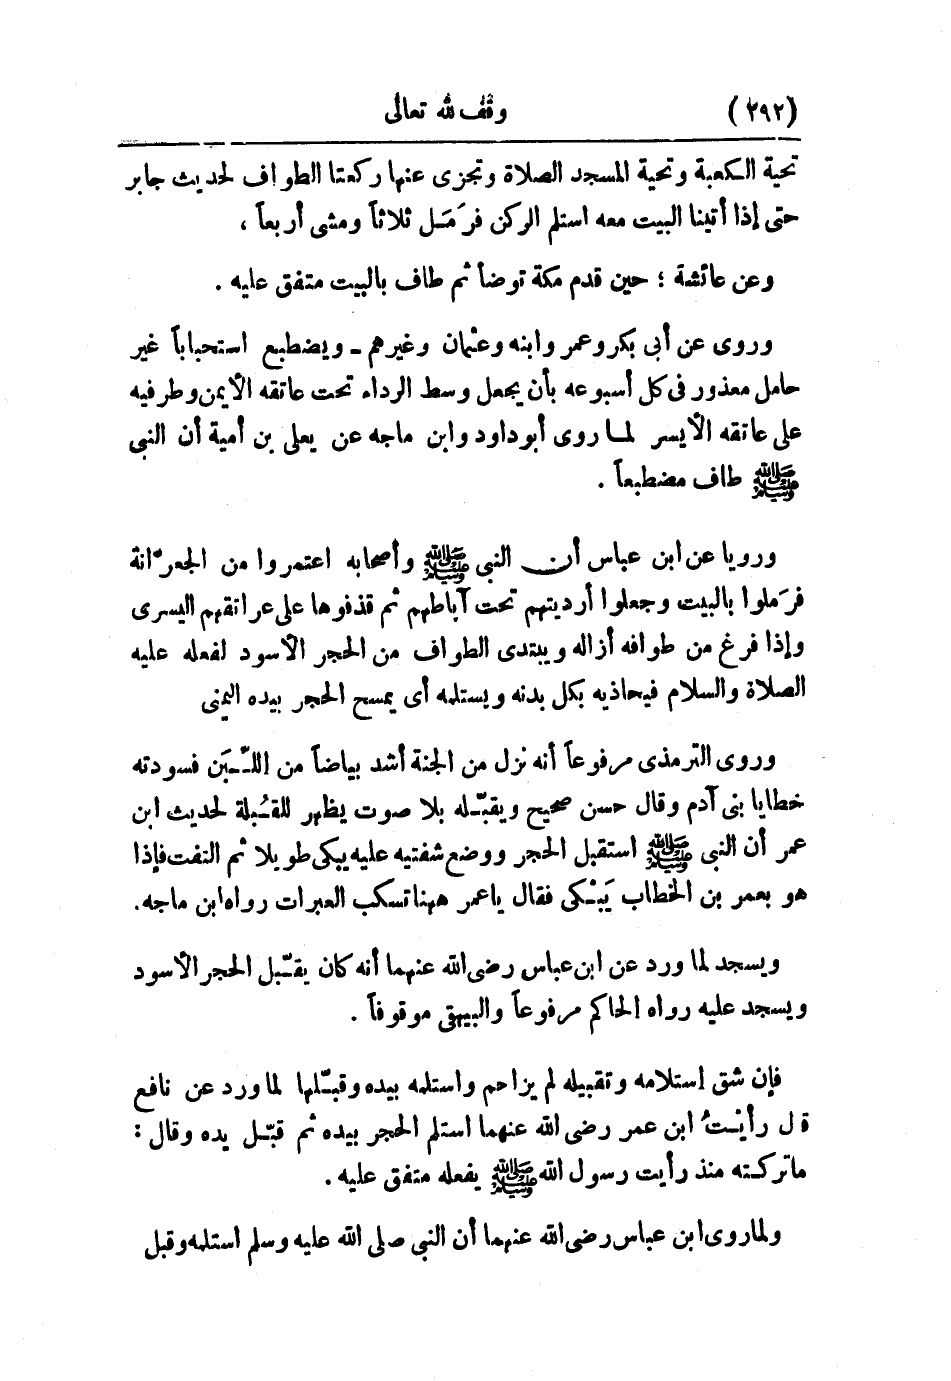 (٢٩٢) وقف لله تعالى
تحية الكعبة وتحية المسجد الصلاة وتجزى عنها ركعتا الطواف لحديث جابر
حتى إذا أتينا البيت معه استلم الركن فرَمَل ثلاثاً ومشى أربعاً ،
وعن عائشة ؛ حين قدم مكة توضأ ثم طاف بالبيت متفق عليه .
وروى عن أبى بكر وعمر وابنه وعثمان وغيرهم ـ ويضطبع استحباباً غير
حامل معذور فى كل أسبوعه بأن يجعل وسط الرداء تحت عاتقه الأيمن وطرفيه
على عاتقه الأيسر لما روى أبو داود وابن ماجه عن يعلى بن أمية أن النبى
ﷺ طاف مضطبعاً .
ورويا عن ابن عباس أن النبى ﷺ وأصحابه اعتمروا من الجعرّانة
فرَملوا بالبيت وجعلوا أرديتهم تحت آباطهم ثم قذفوها على عواتقهم اليسرى
وإذا فرغ من طوافه أزاله ويبتدى الطواف من الحجر الأسود لفعله عليه
الصلاة والسلام فيحاذيه بكل بدنه ويستلمه أى يمسح الحجر بيده اليمنى
وروى الترمذى مرفوعاً أنه نزل من الجنة أشد بياضاً من اللَّبَن فسودته
خطايا بنى آدم وقال حسن صحيح ويقبّله بلا صوت يظهر للقُبلة لحديث ابن
عمر أن النبى ﷺ استقبل الحجر ووضع شفتيه عليه يبكى طويلا ثم التفت فإذا
هو بعمر بن الخطاب يَبْكى فقال ياعمر ههنا تسكب العبرات رواه ابن ماجه.
ويسجد لما ورد عن ابن عباس رضى الله عنهما أنه كان يقبّل الحجر الأسود
ويسجد عليه رواه الحاكم مرفوعاً والبيهقى موقوفاً .
فإن شق إستلامه وتقبيله لم يزاحم واستلمه بيده وقبّلها لما ورد عن نافع
قال رأيْتُ ابن عمر رضى الله عنهما استلم الحجر بيده ثم قبّل يده وقال :
ماتركته منذ رأيت رسول الله ﷺ يفعله متفق عليه .
ولما روى ابن عباس رضى الله عنهما أن النبى صلى الله عليه وسلم استلمه وقبل